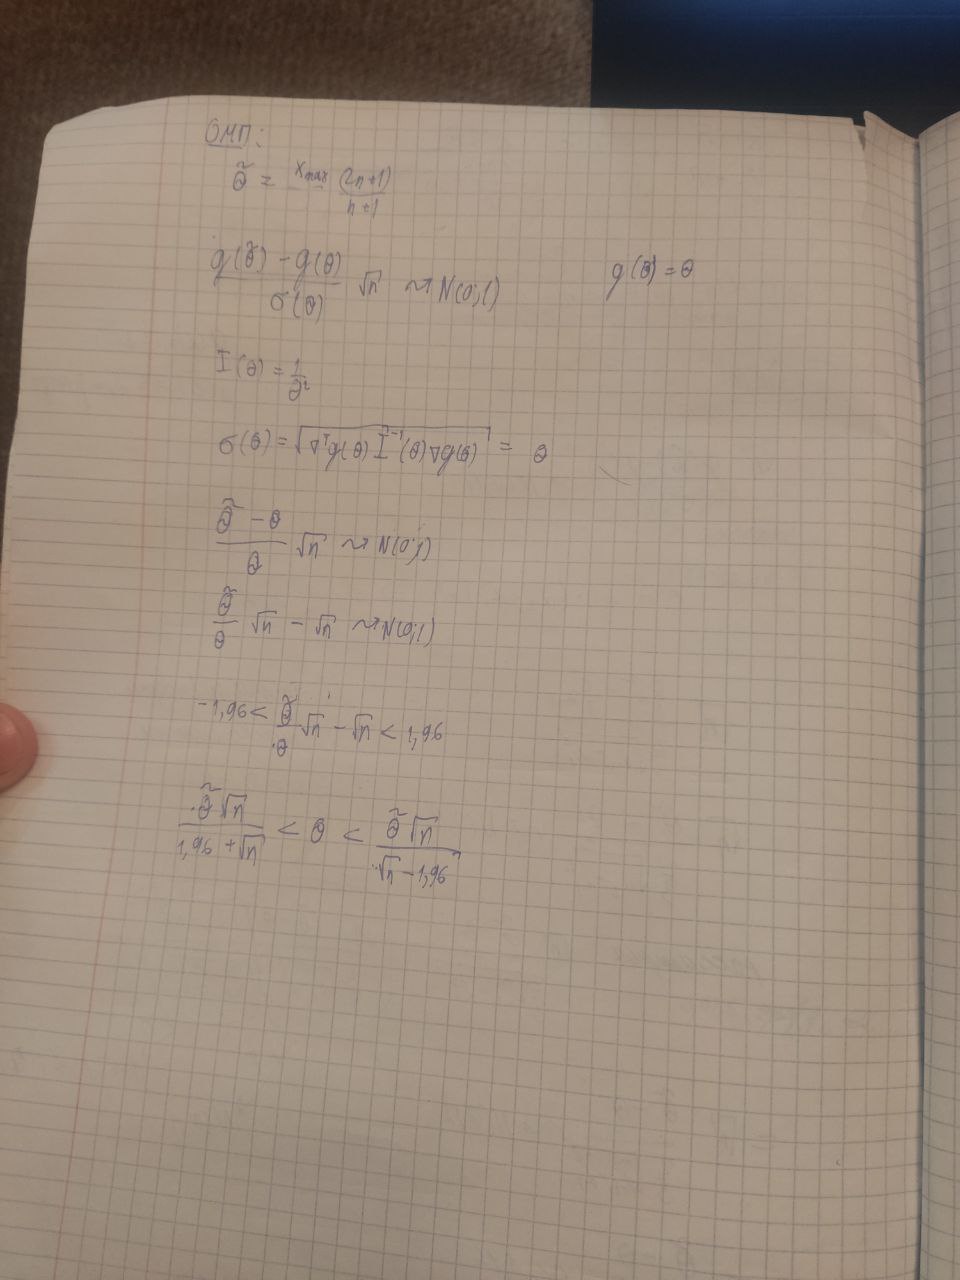 ОМП:
θ̃ = x_max (2n+1) / n+1
(g(θ̃) - g(θ)) / σ(θ) √n ~ N(0;1) g(θ) = θ
I(θ) = 1/θ²
σ(θ) = √(∇ᵀg(θ) I⁻¹(θ) ∇g(θ)) = θ
(θ̃ - θ) / θ √n ~ N(0;1)
θ̃/θ √n - √n ~ N(0;1)
-1,96 < θ̃/θ √n - √n < 1,96
θ̃√n / (1,96 + √n) < θ < θ̃√n / (√n - 1,96)